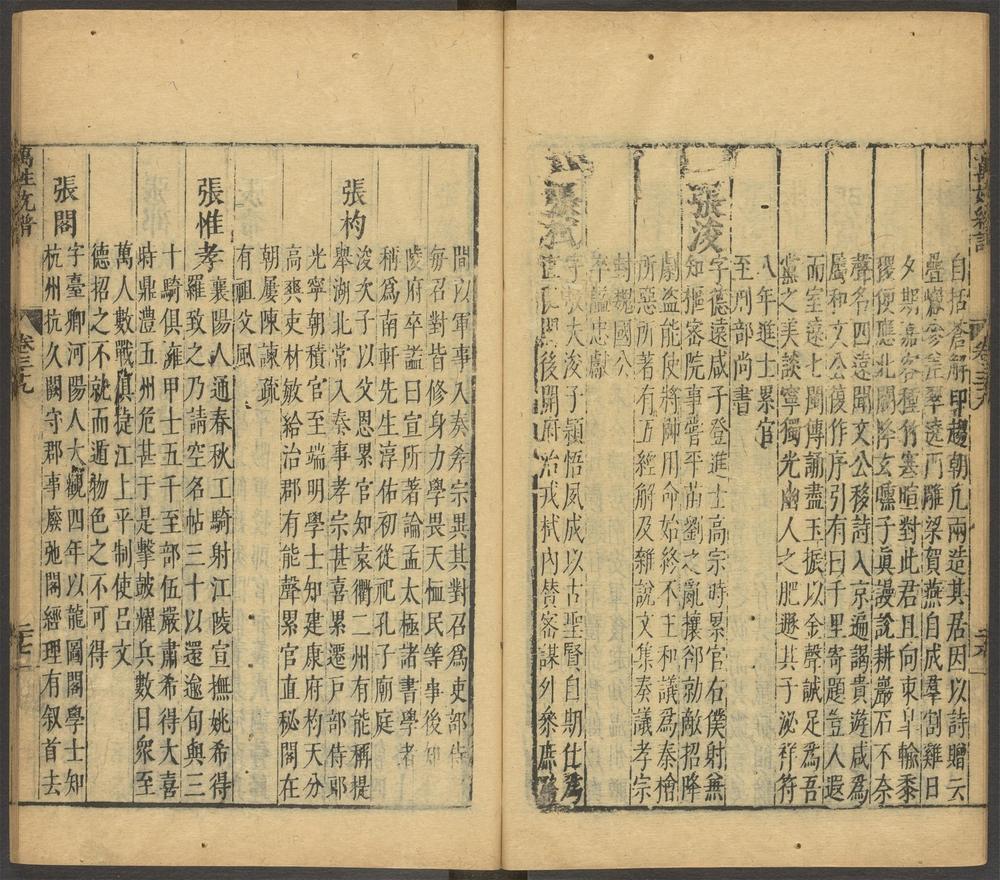 自括蒼解印趨朝凡兩造其居因以詩贈云
疊巘參差翠遶門雕梁賀燕自成羣割雞日
夕期嘉客種竹塞暄對此君且向東皐輸黍
稷便應北闕降玄纁子眞謾說耕巖石不奈
聲名四遠聞文公移詩入京遍謁貴遊咸爲
屬和文公復作序引有曰千里寄題豈人遐
而室遠七閩傳誦盡玉振以金聲誠足爲吾
黨之美談寧獨光幽人之肥遯其子泌祥符
八年進士累官
至刑部尚書
張浚
字德遠咸子登進士高宗時累官右僕射兼
知樞密院事嘗平苗劉之亂攘郤勍敵招降
劇盜能使將帥用命始終不主和議爲秦檜
所惡所著有五經解及雜說文集奏議孝宗
封魏國公
卒謚忠獻
張栻
字敬夫浚子頴悟夙成以古聖賢自期仕爲
直
後開府治戎栻內賛密謀外參庶
萬姓統譜
卷三十九
間以軍事入奏孝宗異其對召爲吏部侍
每召對皆修身力學畏天恤民等事後知
陵府卒謚曰宣所著論孟太極諸書學者
稱爲南軒先生淳佑初從祀孔子廟庭
張杓
浚次子以父恩累官知袁衢二州有能稱提
舉湖北常入奏事孝宗甚喜累遷戶部侍郎
光寧朝積官至端明學士知建康府杓天分
高爽吏材敏給治郡有能聲累官直秘閣在
朝屢陳諫疏
有祖父風
張惟孝
襄陽人通春秋工騎射江陵宣撫姚希得
羅致之乃請空名帖三十以還逾旬與三
十騎俱擁甲士五千至部伍嚴肅希得大喜
時鼎澧五州危甚于是擊鼓耀兵數日衆至
萬人數戰俱捷江上平制使呂文
德招之不就而遁物色之不可得
張閣
字臺卿河陽人大觀四年以龍圖閣學士知
杭州杭久闕守郡事廢弛閣經理有叙首去
萬姓統譜
卷三九